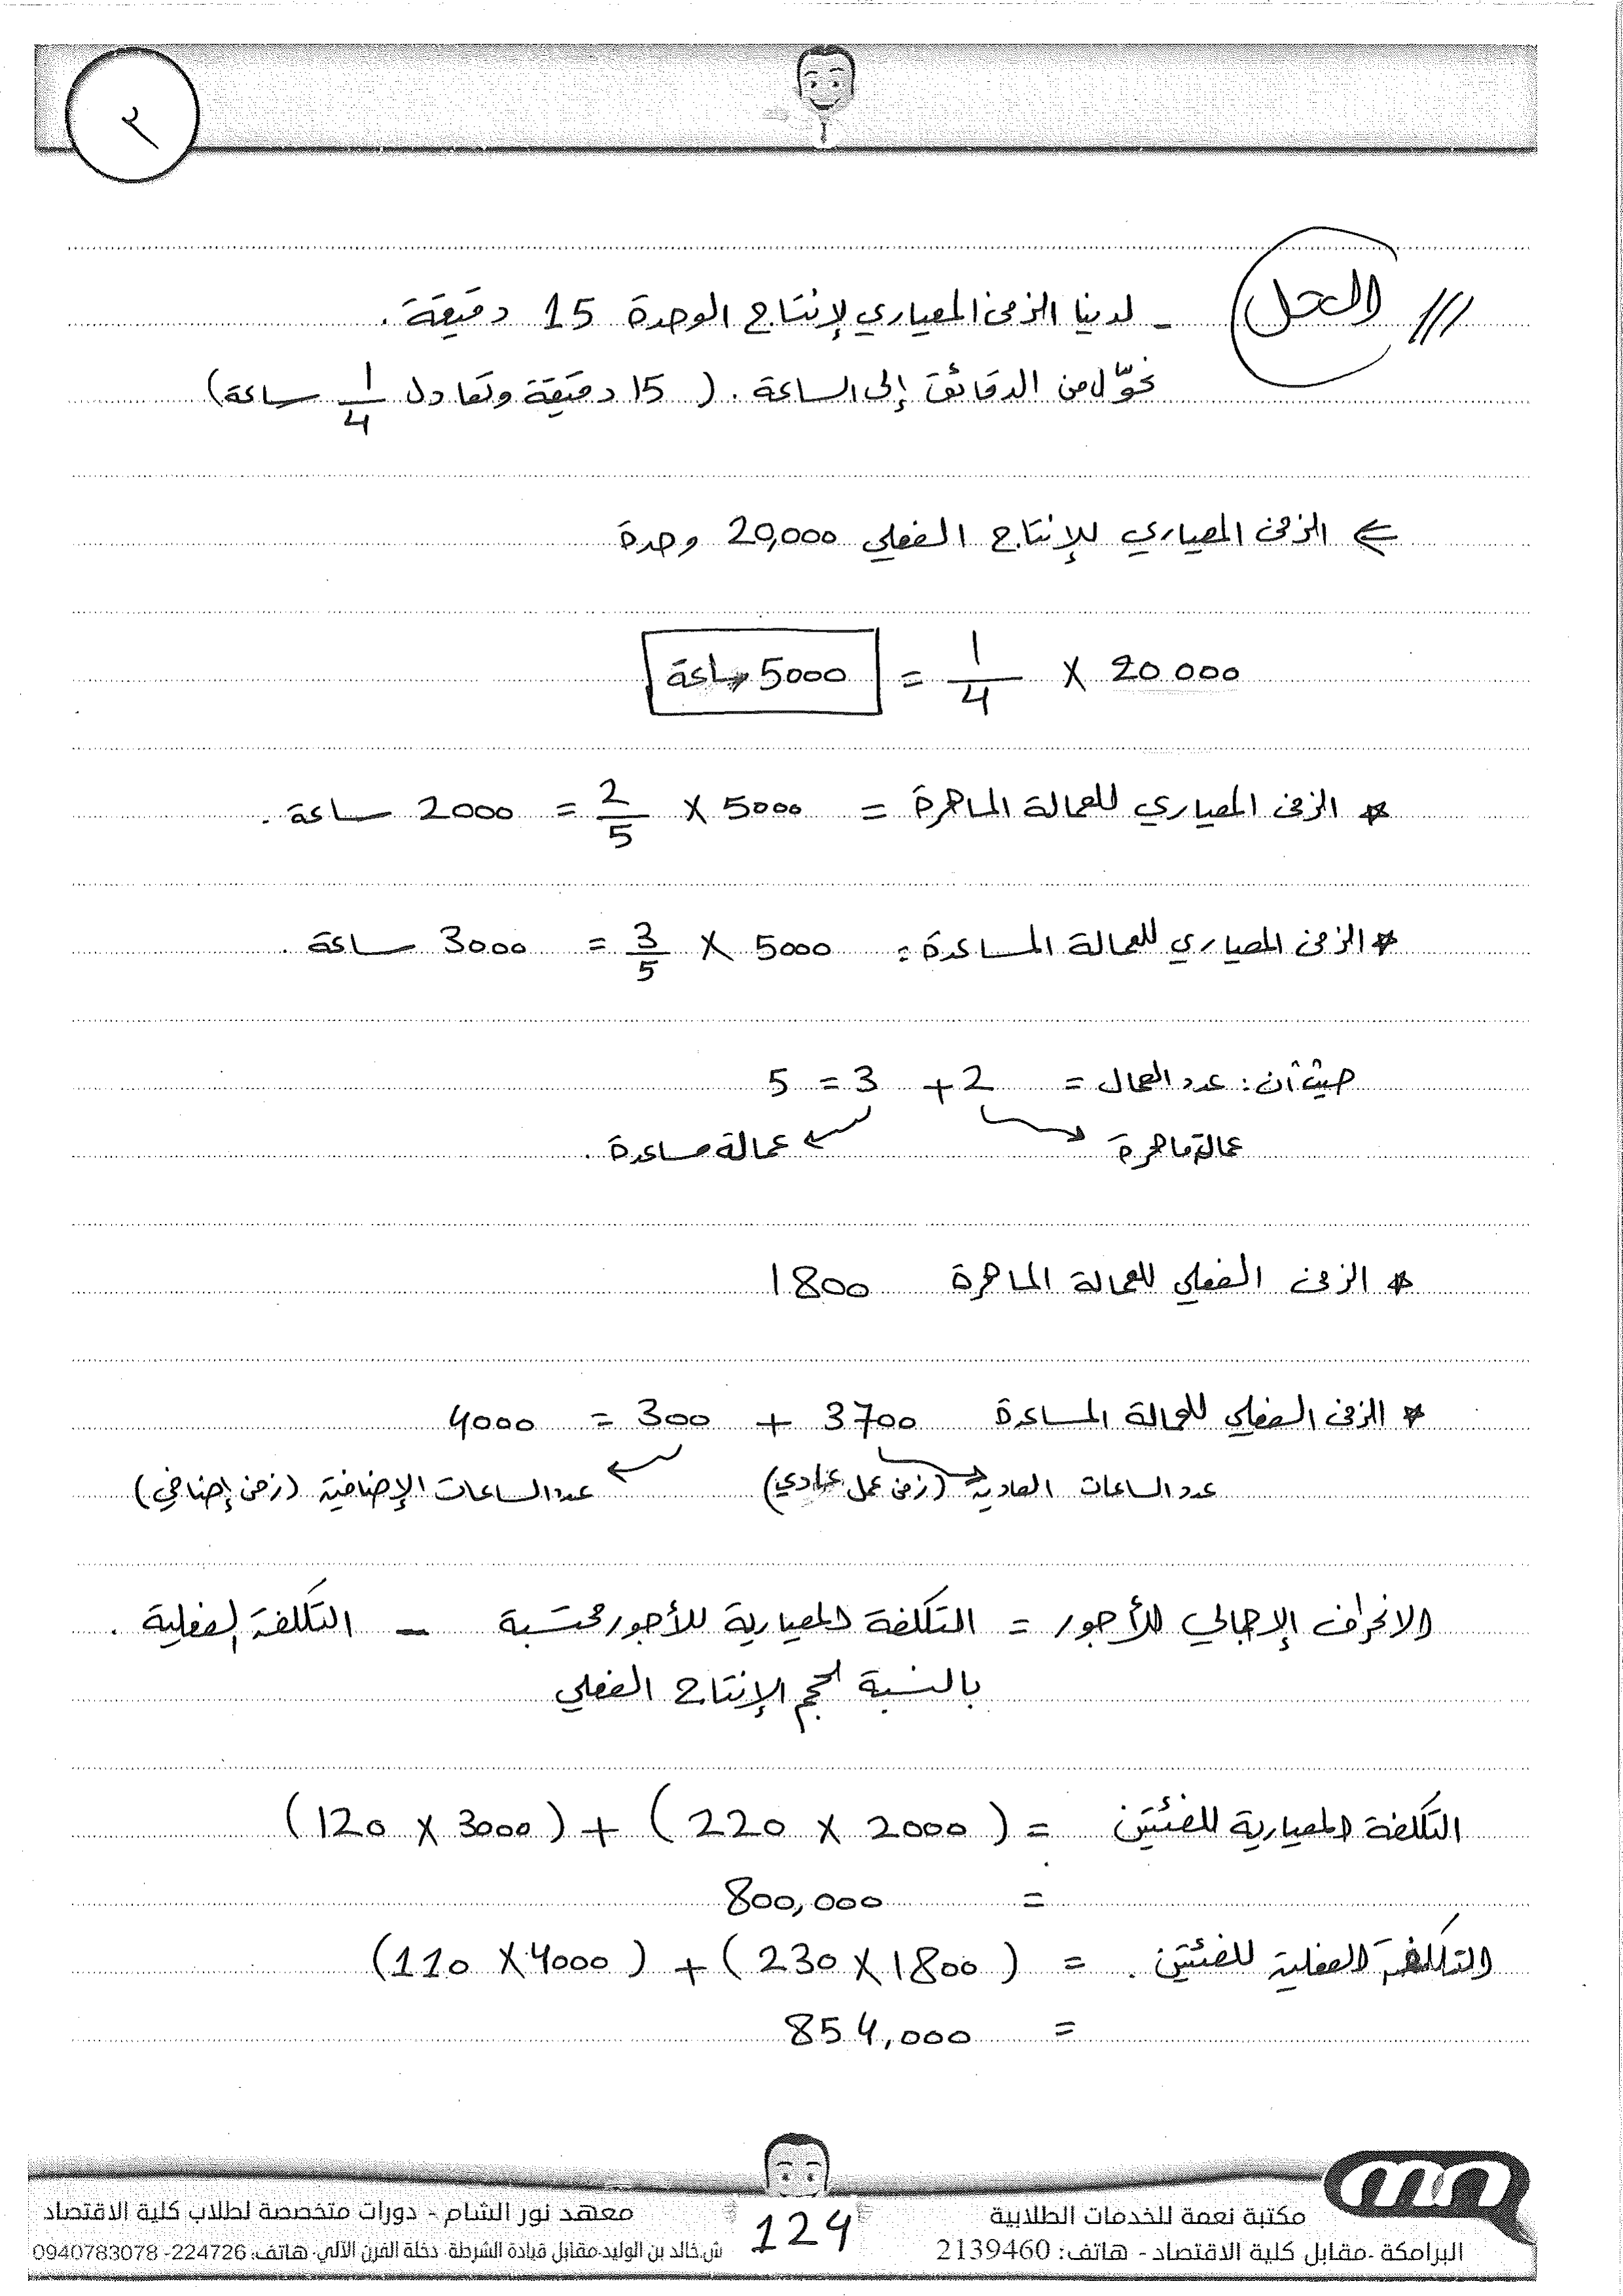 ٢
/// الحل - لدينا الزمن المعياري لإنتاج الوحدة 15 دقيقة .
نحوّل من الدقائق إلى الساعة . ( 15 دقيقة وتعادل 1/4 ساعة )
⇐ الزمن المعياري للإنتاج الفعلي 20,000 وحدة
20 000 × 1/4 = 5000 ساعة
* الزمن المعياري للعمالة الماهرة = 5000 × 2/5 = 2000 ساعة .
* الزمن المعياري للعمالة المساعدة = 5000 × 3/5 = 3000 ساعة .
حيث أن : عدد العمال = 2 + 3 = 5
عمالة ماهرة عمالة مساعدة .
* الزمن الفعلي للعمالة الماهرة 1800
* الزمن الفعلي للعمالة المساعدة 3700 + 300 = 4000
عدد الساعات العادية (زمن عمل عادي) عدد الساعات الإضافية (زمن إضافي)
الانحراف الإجمالي للأجور = التكلفة المعيارية للأجور محتسبة - التكلفة الفعلية .
بالنسبة لحجم الإنتاج الفعلي
التكلفة المعيارية للفئتين = (2000 × 220) + (3000 × 120)
= 800,000
التكلفة الفعلية للفئتين . = (1800 × 230) + (4000 × 110)
= 854,000
مكتبة نعمة للخدمات الطلابية
البرامكة -مقابل كلية الاقتصاد - هاتف: 2139460
124
معهد نور الشام - دورات متخصصة لطلاب كلية الاقتصاد
ش.خالد بن الوليد-مقابل قيادة الشرطة- دخلة الفرن الآلي- هاتف: 224726- 0940783078